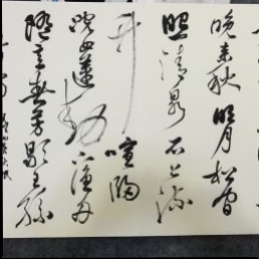 晚來秋明月松間
照清泉石上流
竹喧歸
浣女蓮動下漁舟
隨意春芳歇王孫